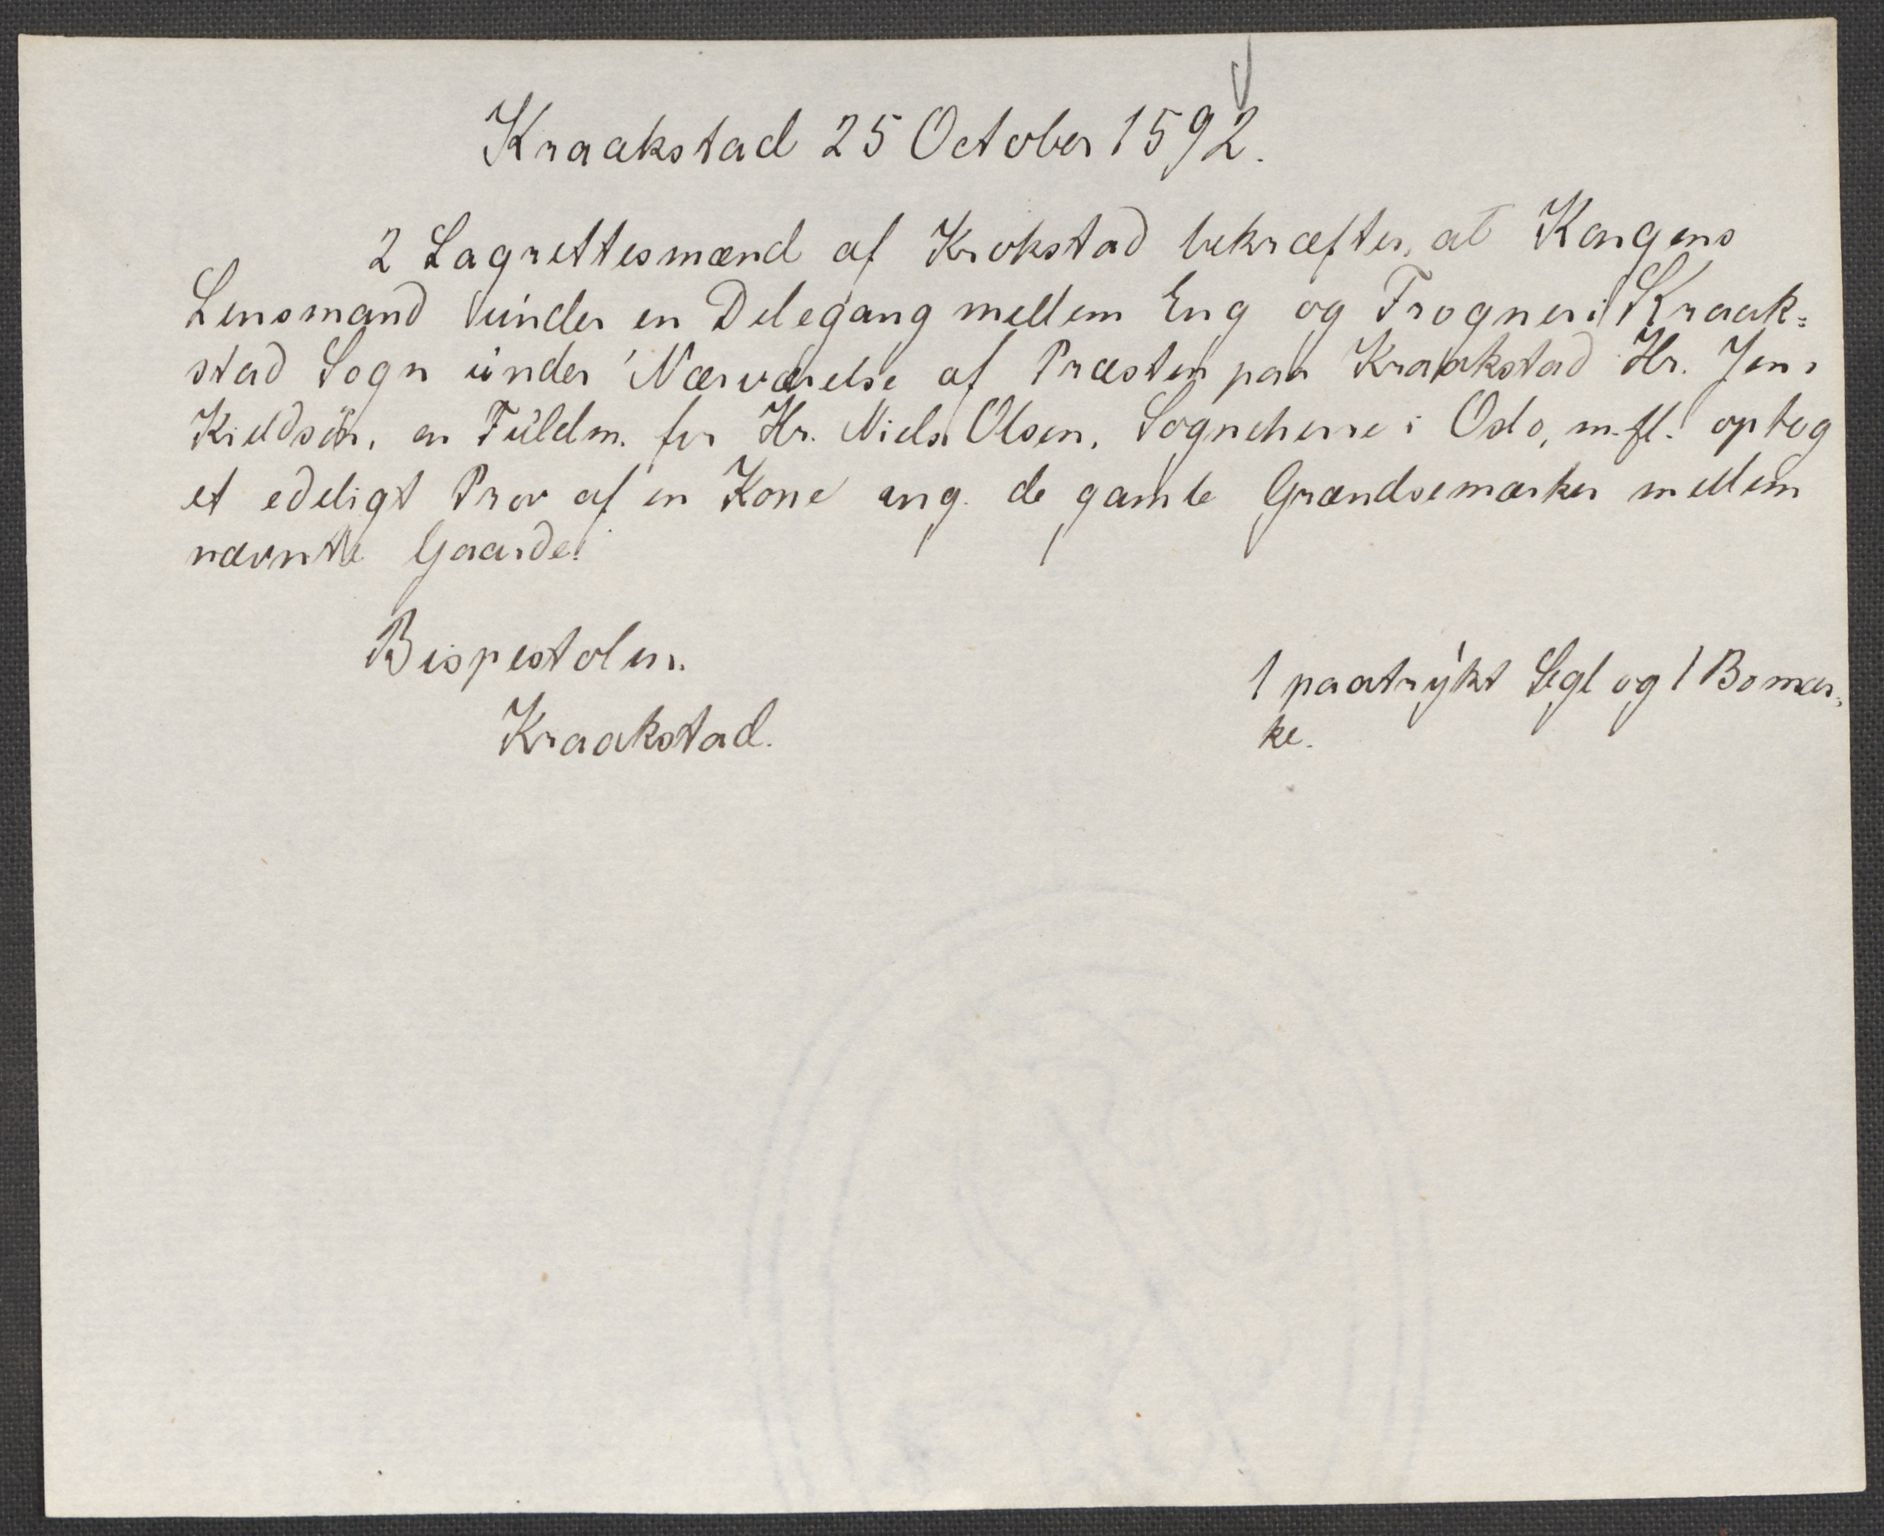 Kraakstad 25 October 1592.
2 Lagrettesmænd af Krokstad bekræfter, at Kongens
Lensmand under en Delegang mellem Eng og Frogner i Kraak=
stad Sogn under Nærværelse af Præsten paa Kraakstad Hr. Jens
Kieldsön, en Fuldm. for Hr. Niels Olsen, Sogneherre i Oslo, m.fl. optog
et edeligt Prov af en Kone ang. de gamle Grændsemærker mellem
nævnte Gaarde.
Bispestolen.
1 paatrykt Segl og 1 Bomær=
ke.
Kraakstad.